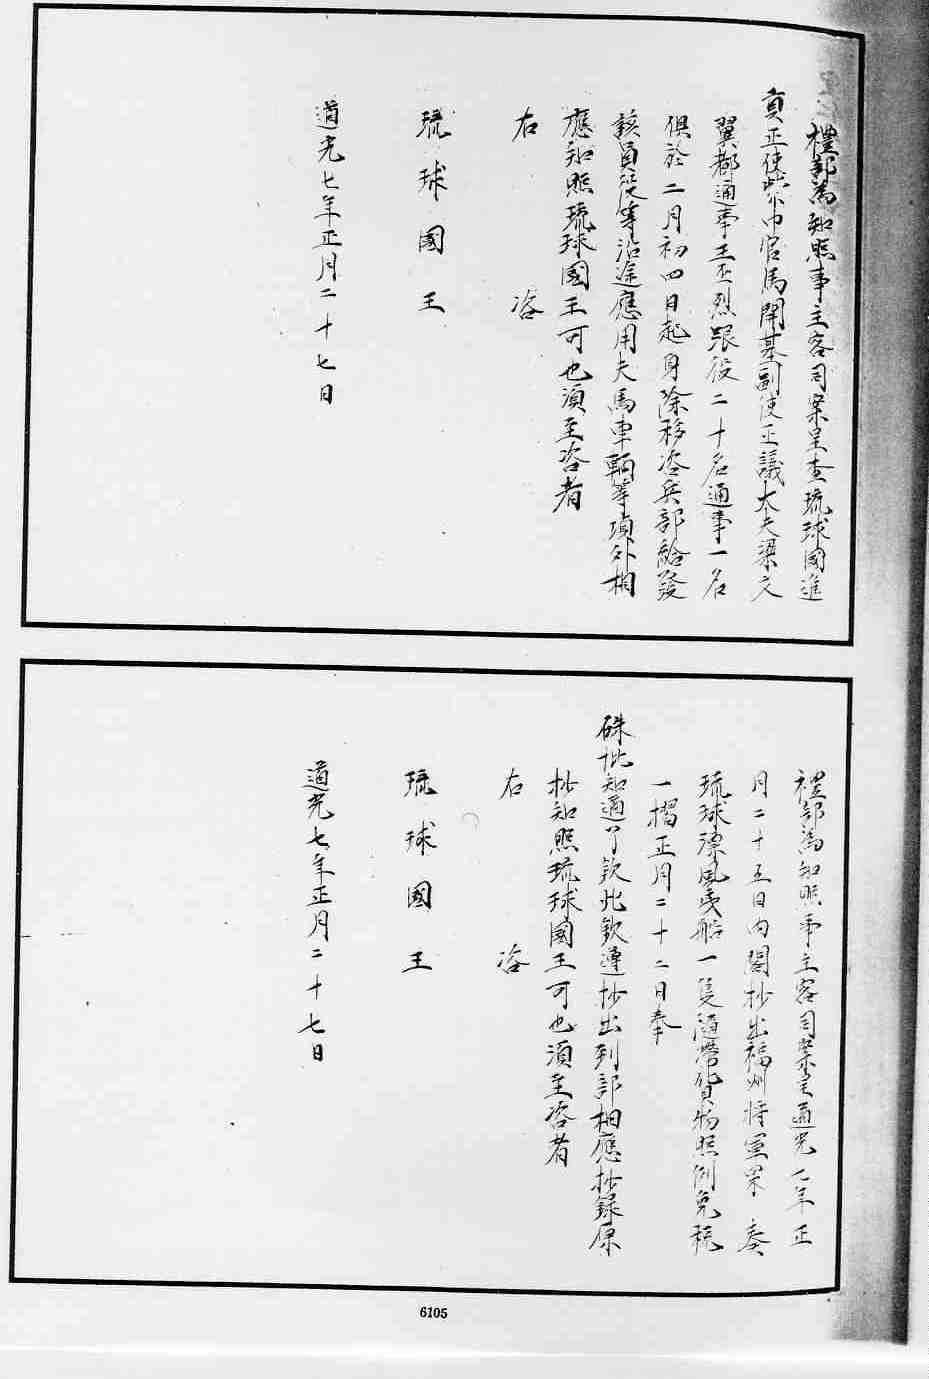 禮部為知照事主客司案呈查琉球國進
貢正使紫巾官馬開基副使正議大夫梁文
翼都通事王丕烈跟役二十名通事一名
俱於二月初四日起身除移咨兵部給發
該員役等沿途應用夫馬車輛等項外相
應知照琉球國王可也須至咨者
右咨
琉球國王
道光七年正月二十七日
禮部為知照事主客司案呈道光七年正
月二十五日內閣抄出福州將軍果 奏
琉球漂風夷船一隻隨帶貨物照例免稅
一摺正月二十二日奉
硃批知道了欽此欽遵抄出到部相應抄錄原
抄知照琉球國王可也須至咨者
右咨
琉球國王
道光七年正月二十七日
6105